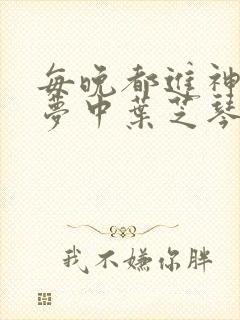 每晚都進神
夢中葉芝琴
我不嫌你胖